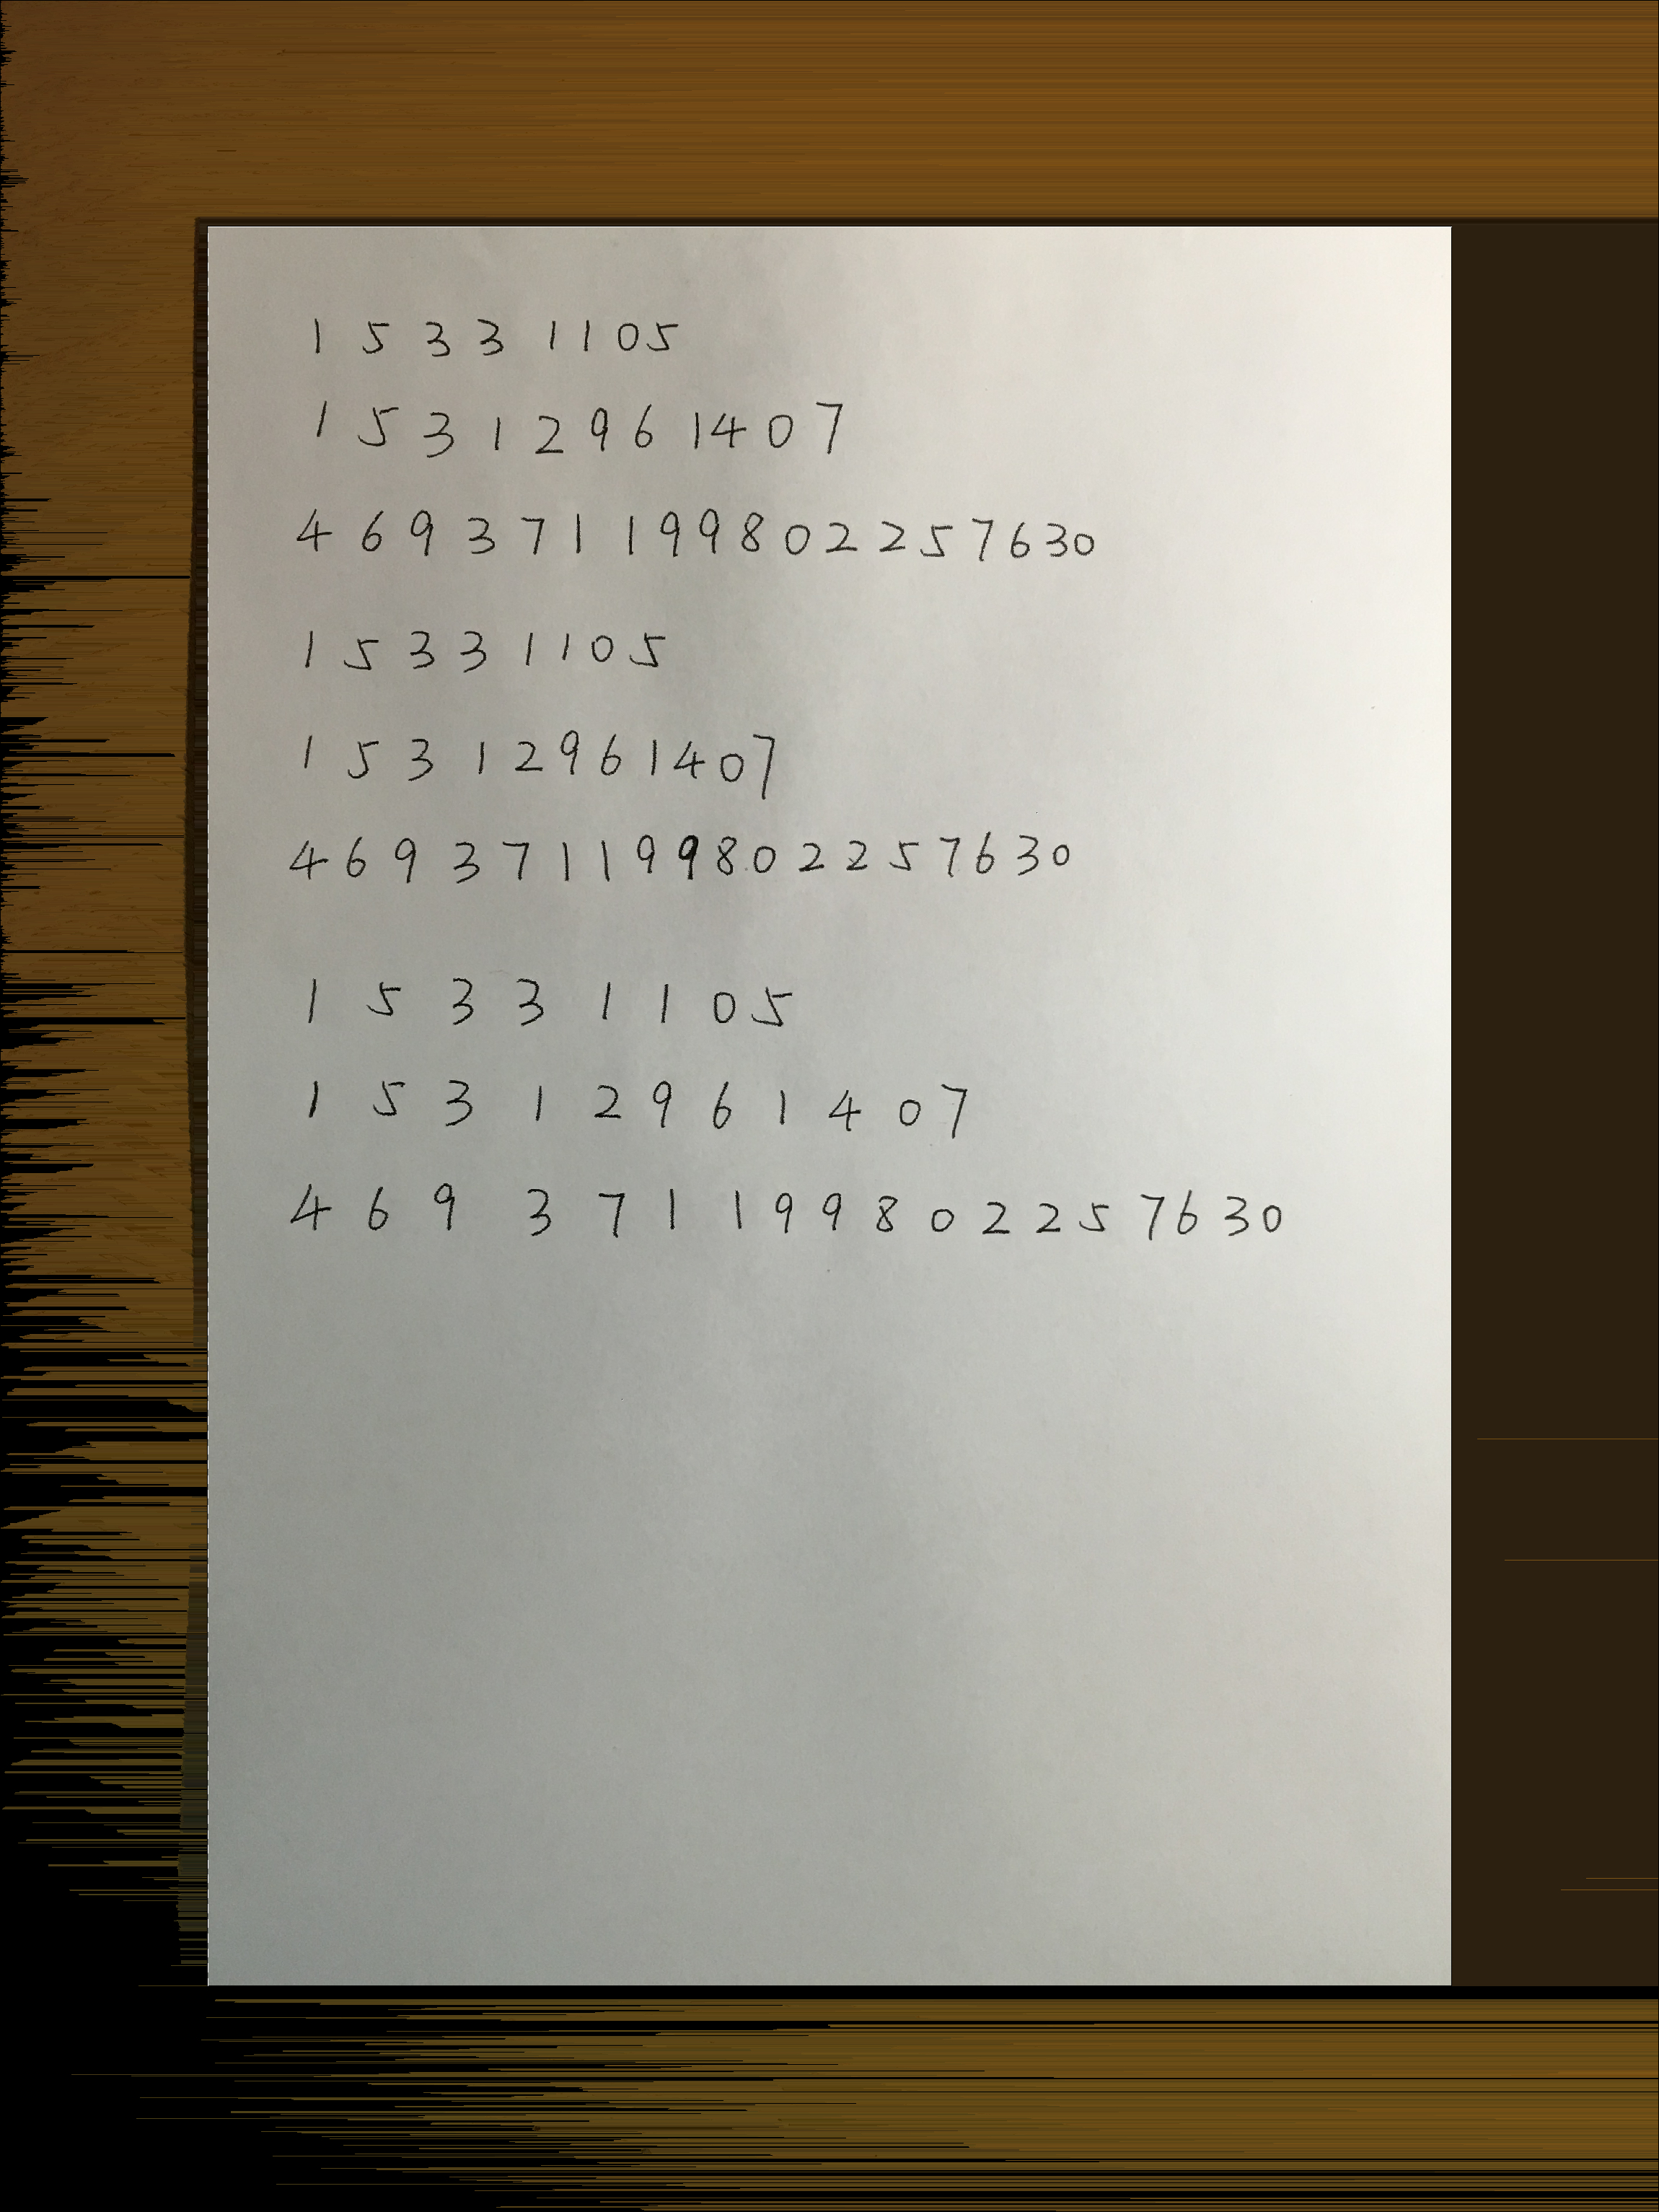 1 5 3 3 1 1 0 5
1 5 3 1 2 9 6 1 4 0 7
4 6 9 3 7 1 1 9 9 8 0 2 2 5 7 6 3 0
1 5 3 3 1 1 0 5
1 5 3 1 2 9 6 1 4 0 7
4 6 9 3 7 1 1 9 9 8 0 2 2 5 7 6 3 0
1 5 3 3 1 1 0 5
1 5 3 1 2 9 6 1 4 0 7
4 6 9 3 7 1 1 9 9 8 0 2 2 5 7 6 3 0